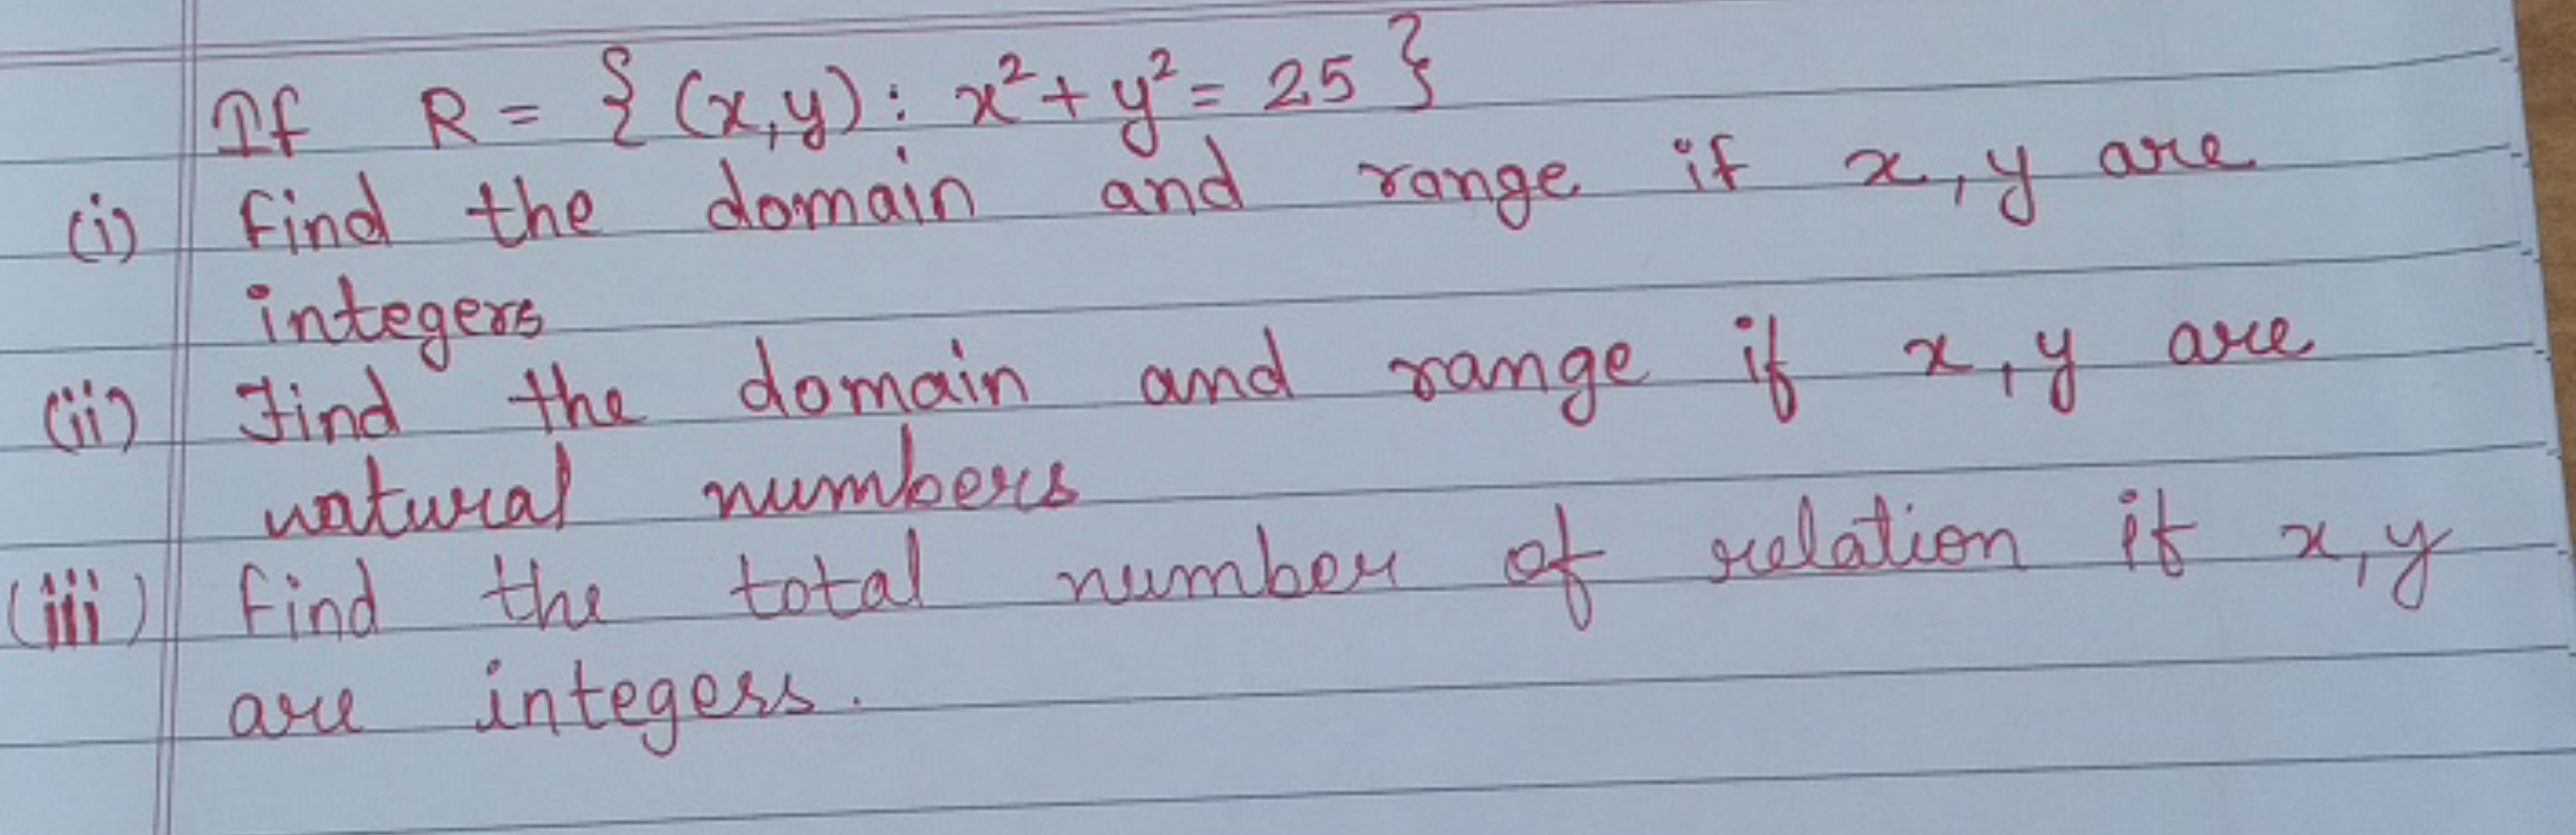 If R = { (x,y) : x² + y² = 25 }
(i) find the domain and range if x, y are
integers
(ii) Find the domain and range if x, y are
natural numbers
(iii) find the total number of relation if x, y
are integers.